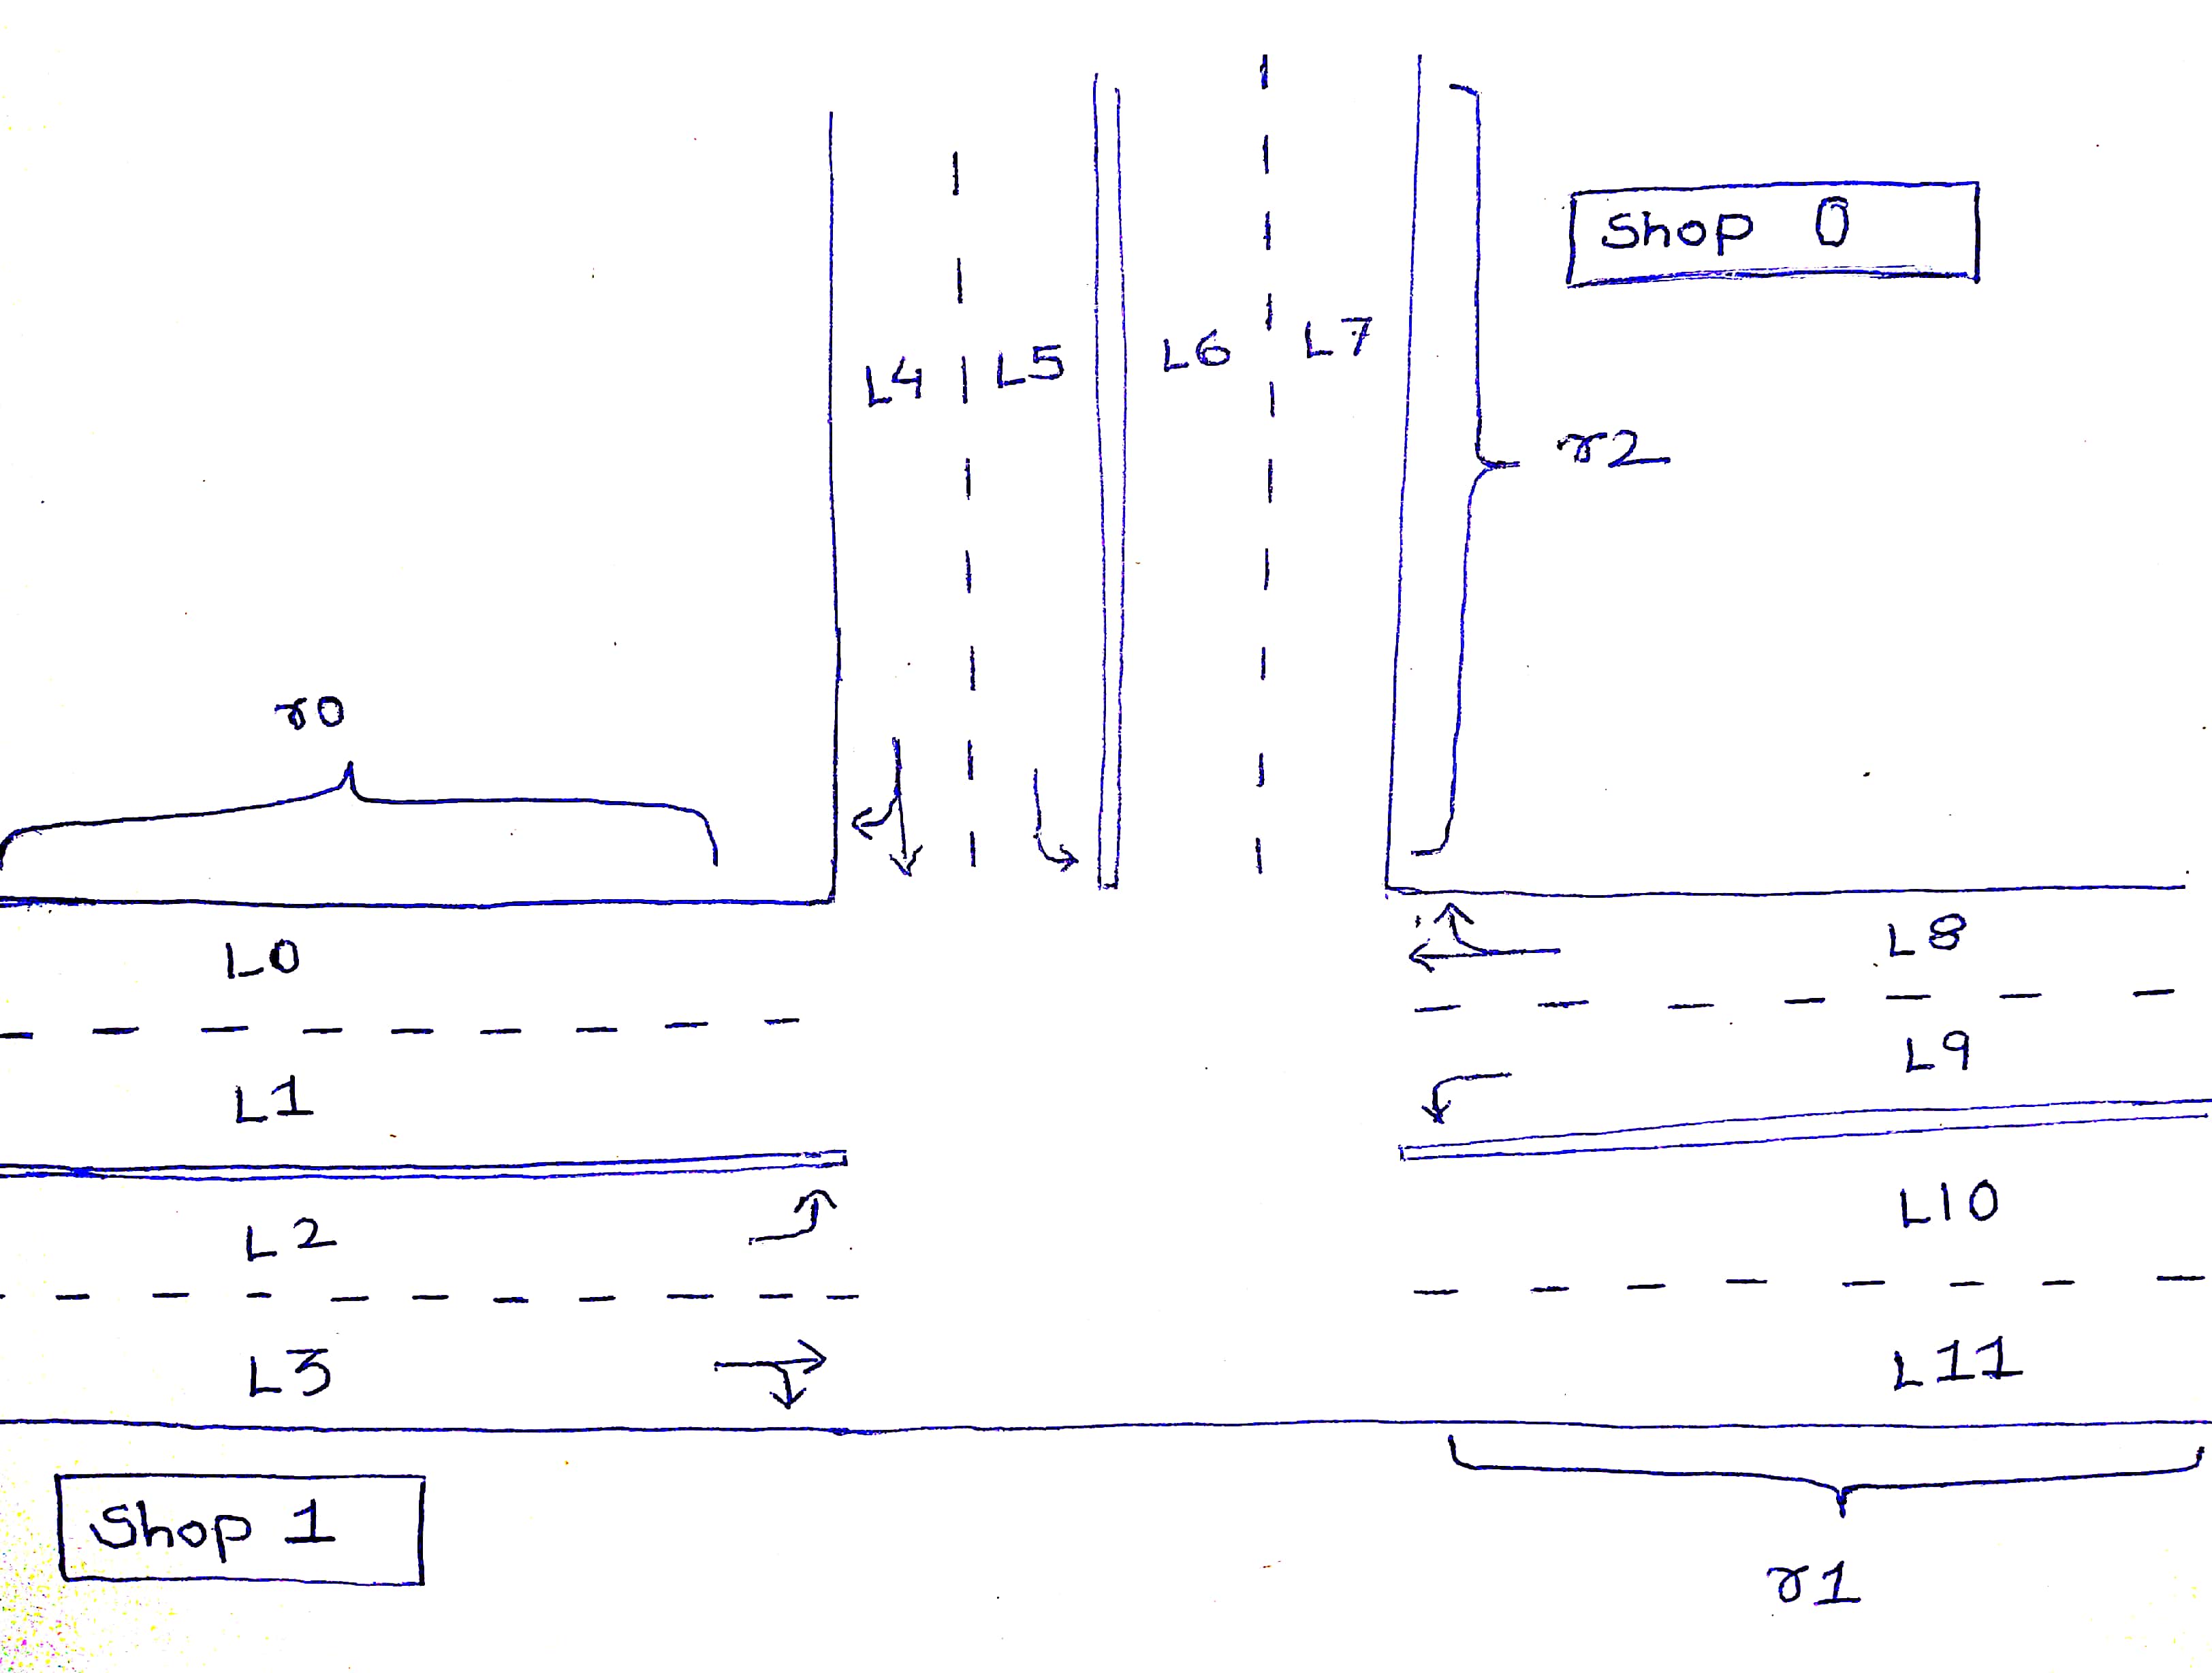 Shop 0
L4 L5 L6 L7
r2
r0
L0
L8
L1
L9
L2
L10
L3
L11
Shop 1
r1